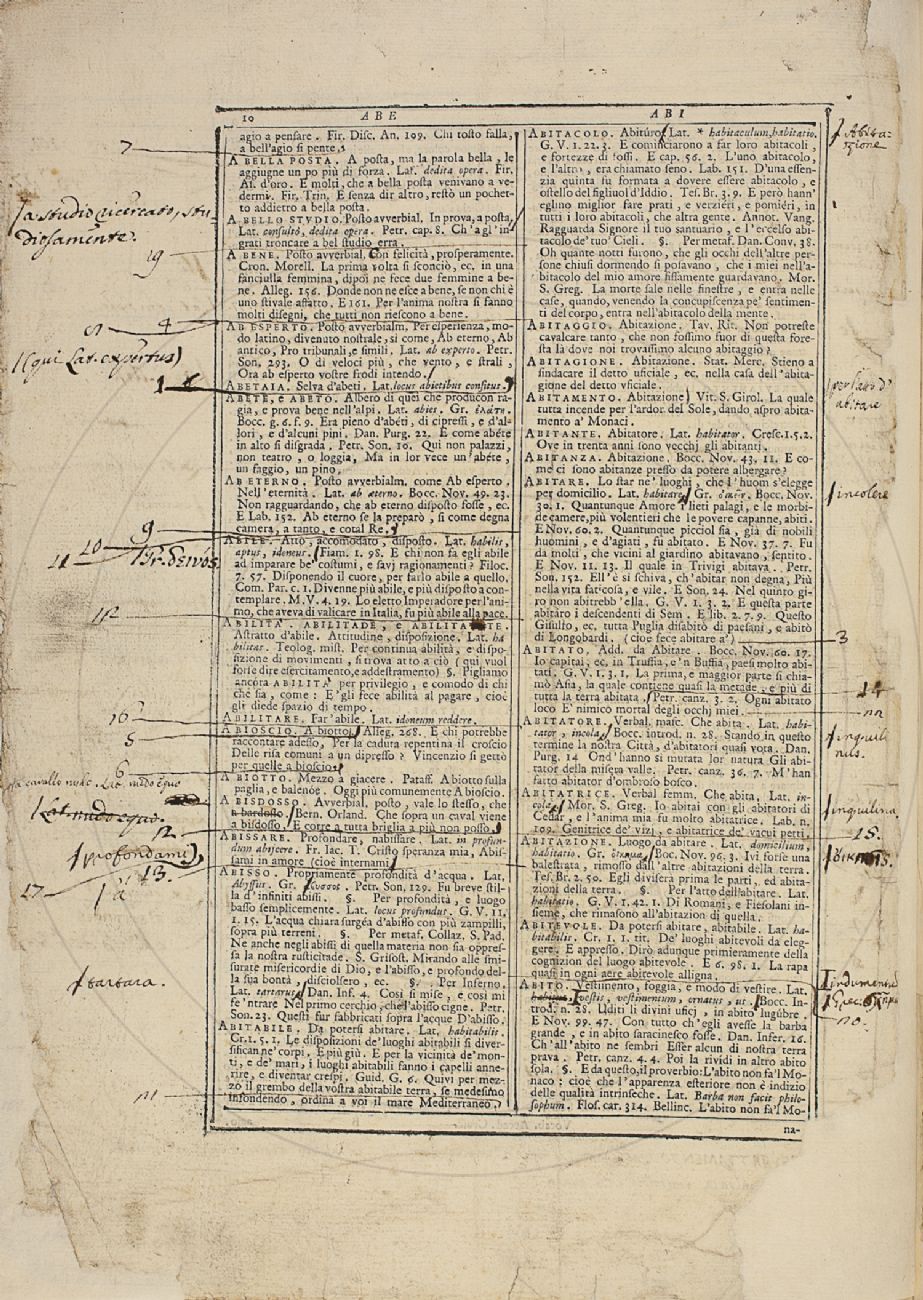 10 ABE ABI
agio a pensare. Fir. Disc. An. 109. Chi tosto falla,
a bell'agio si pente.
A BELLA POSTA. A posta, ma la parola bella, le
aggiugne un po più di forza. Lat. dedita opera. Fir.
As. d'oro. E molti, che a bella posta venivano a ve-
dermi. Fir. Trin. E senza dir altro, restò un pochet-
to addietro a bella posta.
A BELLO STVDIO. Posto avverbial. In prova, a posta,
Lat. consultò, dedita opera. Petr. cap. 8. Ch'agl'in
grati troncare a bel studio erra.
A BENE. Posto avverbial. Con felicità, prosperamente.
Cron. Morell. La prima volta si sconciò, ec. in una
fanciulla femmina, dipoi ne fece due femmine a be-
ne. Alleg. 156. Donde non ne esce a bene, se non chi è
uno stivale affatto. E 161. Per l'anima nostra si fanno
molti disegni, che tutti non riescono a bene.
AB ESPERTO. Posto avverbialm. Per esperienza, mo-
do latino, divenuto nostrale, si come, Ab eterno, Ab
antico, Pro tribunali, e simili. Lat. ab experto. Petr.
Son. 293. O di veloci più, che vento, e strali,
Ora ab esperto vostre frodi intendo.
ABETAIA. Selva d'abeti. Lat. locus abietibus consitus.
ABETE, e ABETO. Albero di quei che producon ra-
gia, e prova bene nell'alpi. Lat. abies. Gr. ἐλάτη.
Bocc. g. 6. f. 9. Era pieno d'abéti, di cipressi, e d'al-
lori, e d'alcuni pini. Dan. Purg. 22. E come abéte
in alto si disgrada, Petr. Son. 10. Qui non palazzi,
non teatro, o loggia, Ma in lor vece un'abéte,
un faggio, un pino.
AB ETERNO. Posto avverbialm. come Ab esperto.
Nell'eternità. Lat. ab æterno. Bocc. Nov. 49. 23.
Non ragguardando, che ab eterno disposto fosse, ec.
E Lab. 152. Ab eterno se la preparò, si come degna
camera, a tanto, e cotal Re.
ABILE. Atto, accomodato, disposto. Lat. habilis,
aptus, idoneus. Fiam. 1. 98. E chi non fa egli abile
ad imparare be' costumi, e savj ragionamenti? Filoc.
7. 57. Disponendo il cuore, per farlo abile a quello.
Com. Par. c. 1. Divenne più abile, e più disposto a con-
templare. M. V. 4. 19. Lo eletto Imperadore per l'ani-
mo, che aveva di valicare in Italia, fu più abile alla pace.
ABILITA. ABILITADE, e ABILITATE.
Astratto d'abile. Attitudine, disposizione. Lat. ha
bilitas. Teolog. mist. Per continua abilità, e dispo-
sizione di movimenti, si trova atto a ciò (qui vuol
forse dire esercitamento, e addestramento) §. Pigliamo
ancora ABILITA' per privilegio, e comodo di chi
che sia, come: E' gli fece abilità al pagare, cioè
gli diede spazio di tempo.
ABILITARE. Far'abile. Lat. idoneum reddere.
A BIOSCIO. A biotto. Alleg. 268. E chi potrebbe
raccontare adesso, Per la caduta repentina il croscio
Delle risa comuni a un dipresso? Vincenzio si gettò
per quelle a bioscio.
A BIOTTO. Mezzo a giacere. Pataff. A biotto sulla
paglia, e balenoe. Oggi più comunemente A bioscio.
A BISDOSSO. Avverbial. posto, vale lo stesso, che
a bardosso. Bern. Orland. Che sopra un caval viene
a bisdosso, E corre a tutta briglia a più non posso.
ABISSARE. Profondare, nabissare. Lat. in profun-
dum abijcere. Fr. Iac. T. Cristo speranza mia, Abis-
sami in amore (cioè internami
ABISSO. Propriamente profondità d'acqua. Lat.
Abyssus. Gr. ἄβυσσος. Petr. Son. 129. Fu breve stil-
la d'infiniti abissi. §. Per profondità, e luogo
basso semplicemente. Lat. locus profundus. G. V. 11.
1. 15. L'acqua chiara surgéa d'abisso con più zampilli,
sopra più terreni. §. Per metaf. Collaz. S. Pad.
Ne anche negli abissi di quella materia non sia oppres-
sa la nostra rusticitade. S. Grisost. Mirando alle smi-
surate misericordie di Dio, e l'abisso, e profondo del-
la sua bontà, disciolsero, ec. §. Per Inferno.
Lat. tartarus. Dan. Inf. 4. Così si mise, e così mi
fe 'ntrare Nel primo cerchio, che l'abisso cigne. Petr.
Son. 23. Questi fur fabbricati sopra l'acque D'abisso.
ABITABILE. Da potersi abitare. Lat. habitabilis.
Cr. 1. 5. 1. Le disposizioni de' luoghi abitabili si diver-
sifican ne' corpi, E più giù. E per la vicinità de' mon-
ti, e de' mari, i luoghi abitabili fanno i capelli anne-
rire, e diventar crespi. Guid. G. 6. Quivi per mez-
zo il grembo della vostra abitabile terra, se medesimo
infondendo, ordina a voi il mare Mediterraneo.
ABITACOLO. Abitúro. Lat. * habitaculum, habitatio.
G. V. 1. 22. 3. E cominciarono a far loro abitacoli,
e fortezze di fossi. E cap. 56. 2. L'uno abitacolo,
e l'altro, era chiamato seno. Lab. 151. D'una essen-
zia quinta fu formata a dovere essere abitacolo, e
ostello del figliuol d'Iddio. Tes. Br. 3. 9. E però hann'
eglino miglior fare prati, e verzieri, e pomiéri, in
tutti i loro abitacoli, che altra gente. Annot. Vang.
Ragguarda Signore il tuo santuario, e l'eccelso abi-
tacolo de' tuo' Cieli. §. Per metaf. Dan. Conv. 38.
Oh quante notti furono, che gli occhi dell'altre per-
sone chiusi dormendo si posavano, che i miei nell'a-
bitacolo del mio amore fissamente guardavano. Mor.
S. Greg. La morte sale nelle finestre, e entra nelle
case, quando, venendo la concupiscenza pe' sentimen-
ti del corpo, entra nell'abitacolo della mente.
ABITAGGIO. Abitazione. Tav. Rit. Non potreste
cavalcare tanto, che non fossimo fuor di questa fore-
sta là dove noi trovassimo alcuno abitaggio?
ABITAGIONE. Abitazione. Stat. Merc. Stieno a
sindacare il detto uficiale, ec. nella casa dell'abita-
gione del detto vficiale.
ABITAMENTO. Abitazione. Vit. S. Girol. La quale
tutta incende per l'ardor del Sole, dando aspro abita-
mento a' Monaci.
ABITANTE. Abitatore. Lat. habitator. Cresc. 1. 5. 2.
Ove in trenta anni sono vecchj gli abitanti.
ABITANZA. Abitazione. Bocc. Nov. 43. 11. E co-
me ci sono abitanze presso da potere albergare?
ABITARE. Lo star ne' luoghi, che l'huom s'elegge
per domicilio. Lat. habitare. Gr. οἰκεῖν. Bocc. Nov.
30. 1. Quantunque Amore i lieti palagi, e le morbi-
de camere, più volentieri che le povere capanne, abiti.
E Nov. 60. 2. Quantunque picciol sia, già di nobili
huomini, e d'agiati, fu abitato. E Nov. 37. 7. Fu
da molti, che vicini al giardino abitavano, sentito.
E Nov. 11. 13. Il quale in Trivigi abitava. Petr.
Son. 152. Ell'è sì schiva, ch'abitar non degna, Più
nella vita faticosa, e vile. E Son. 24. Nel quinto gi-
ro non abitrebb'ella. G. V. 1. 3. 2. E questa parte
abitaro i descendenti di Sem. E lib. 2. 7. 9. Questo
Gisulfo, ec. tutta Puglia disabitò di paesani, e abitò
di Longobardi. (cioè fece abitare a')
ABITATO. Add. da Abitare. Bocc. Nov. 60. 17.
Io capitai, ec. in Truffia, e 'n Buffia, paesi molto abi-
tati. G. V. 1. 3. 1. La prima, e maggior parte si chia-
mò Asia, la quale contiene quasi la metade, e più di
tutta la terra abitata. Petr. canz. 3. 2. Ogni abitato
loco E' nimico mortal degli occhj miei.
ABITATORE. Verbal. masc. Che abita. Lat. habi-
tator, incola. Bocc. introd. n. 28. Stando in questo
termine la nostra Città, d'abitatori quasi vota. Dan.
Purg. 14 Ond'hanno sì mutata lor natura Gli abi-
tator della misera valle. Petr. canz. 36. 7. M'han
fatto abitator d'ombroso bosco.
ABITATRICE. Verbal femm. Che abita, Lat. in-
cola. Mor. S. Greg. Io abitai con gli abitatori di
Cedar, e l'anima mia fu molto abitatrice. Lab. n.
109. Genitrice de' vizj, e abitatrice de' vacui petti.
ABITAZIONE. Luogo da abitare. Lat. domicilium,
habitatio. Gr. οἴκημα. Bocc. Nov. 96. 3. Ivi forse una
balestrata, rimosso dall'altre abitazioni della terra.
Tes. Br. 2. 50. Egli divisera prima le parti, ed abita-
zioni della terra. §. Per l'atto dell'abitare. Lat.
habitatio. G. V. 1. 42. 1. Di Romani, e Fiesolani in-
sieme, che rimasono all'abitazion di quella.
ABITEVOLE. Da potersi abitare, abitabile. Lat. ha-
bitabilis. Cr. 1. 1. tit. De' luoghi abitevoli da eleg-
gere. E appresso. Dirò adunque primieramente della
cognizion del luogo abitevole. E 6. 98. 1. La rapa
quasi in ogni aere abitevole alligna.
ABITO. Vestimento, foggia, e modo di vestire. Lat.
habitus, vestis, vestimentum, ornatus, us. Bocc. In-
trod. n. 28. Uditi li divini uficj, in abito lugúbre.
E Nov. 99. 47. Con tutto ch'egli avesse la barba
grande, e in abito saracinesco fosse. Dan. Infer. 16.
Ch'all'abito ne sembri Esser alcun di nostra terra
prava. Petr. canz. 4. 4. Poi la rividi in altro abito
sola. §. E da questo, il proverbio: L'abito non fa'l Mo-
naco: cioè che l'apparenza esteriore non è indizio
delle qualità intrinseche. Lat. Barba non facit philo-
sophum. Flos. car. 314. Bellinc. L'abito non fa'l Mo-
na-
7
a studio ricercato, stu-
diosamente.
19
4
(qui Lat. expertus)
1
9
10
11
Gr. δεινός
16
5
6
a cavallo nudo. Lat. nudo equo
Lat. nudo equo.
12
(profondami)
13.
17
à
tartara.
Abita-
zione
per lato d'
abitare
incolere
3
14
inquili
nus.
inquilina
15.
indumentum